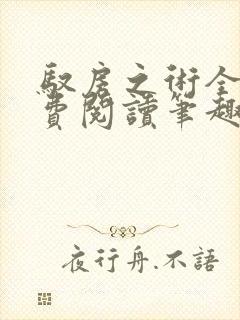 馭房之術全
費閱讀筆趣
夜行舟.不語